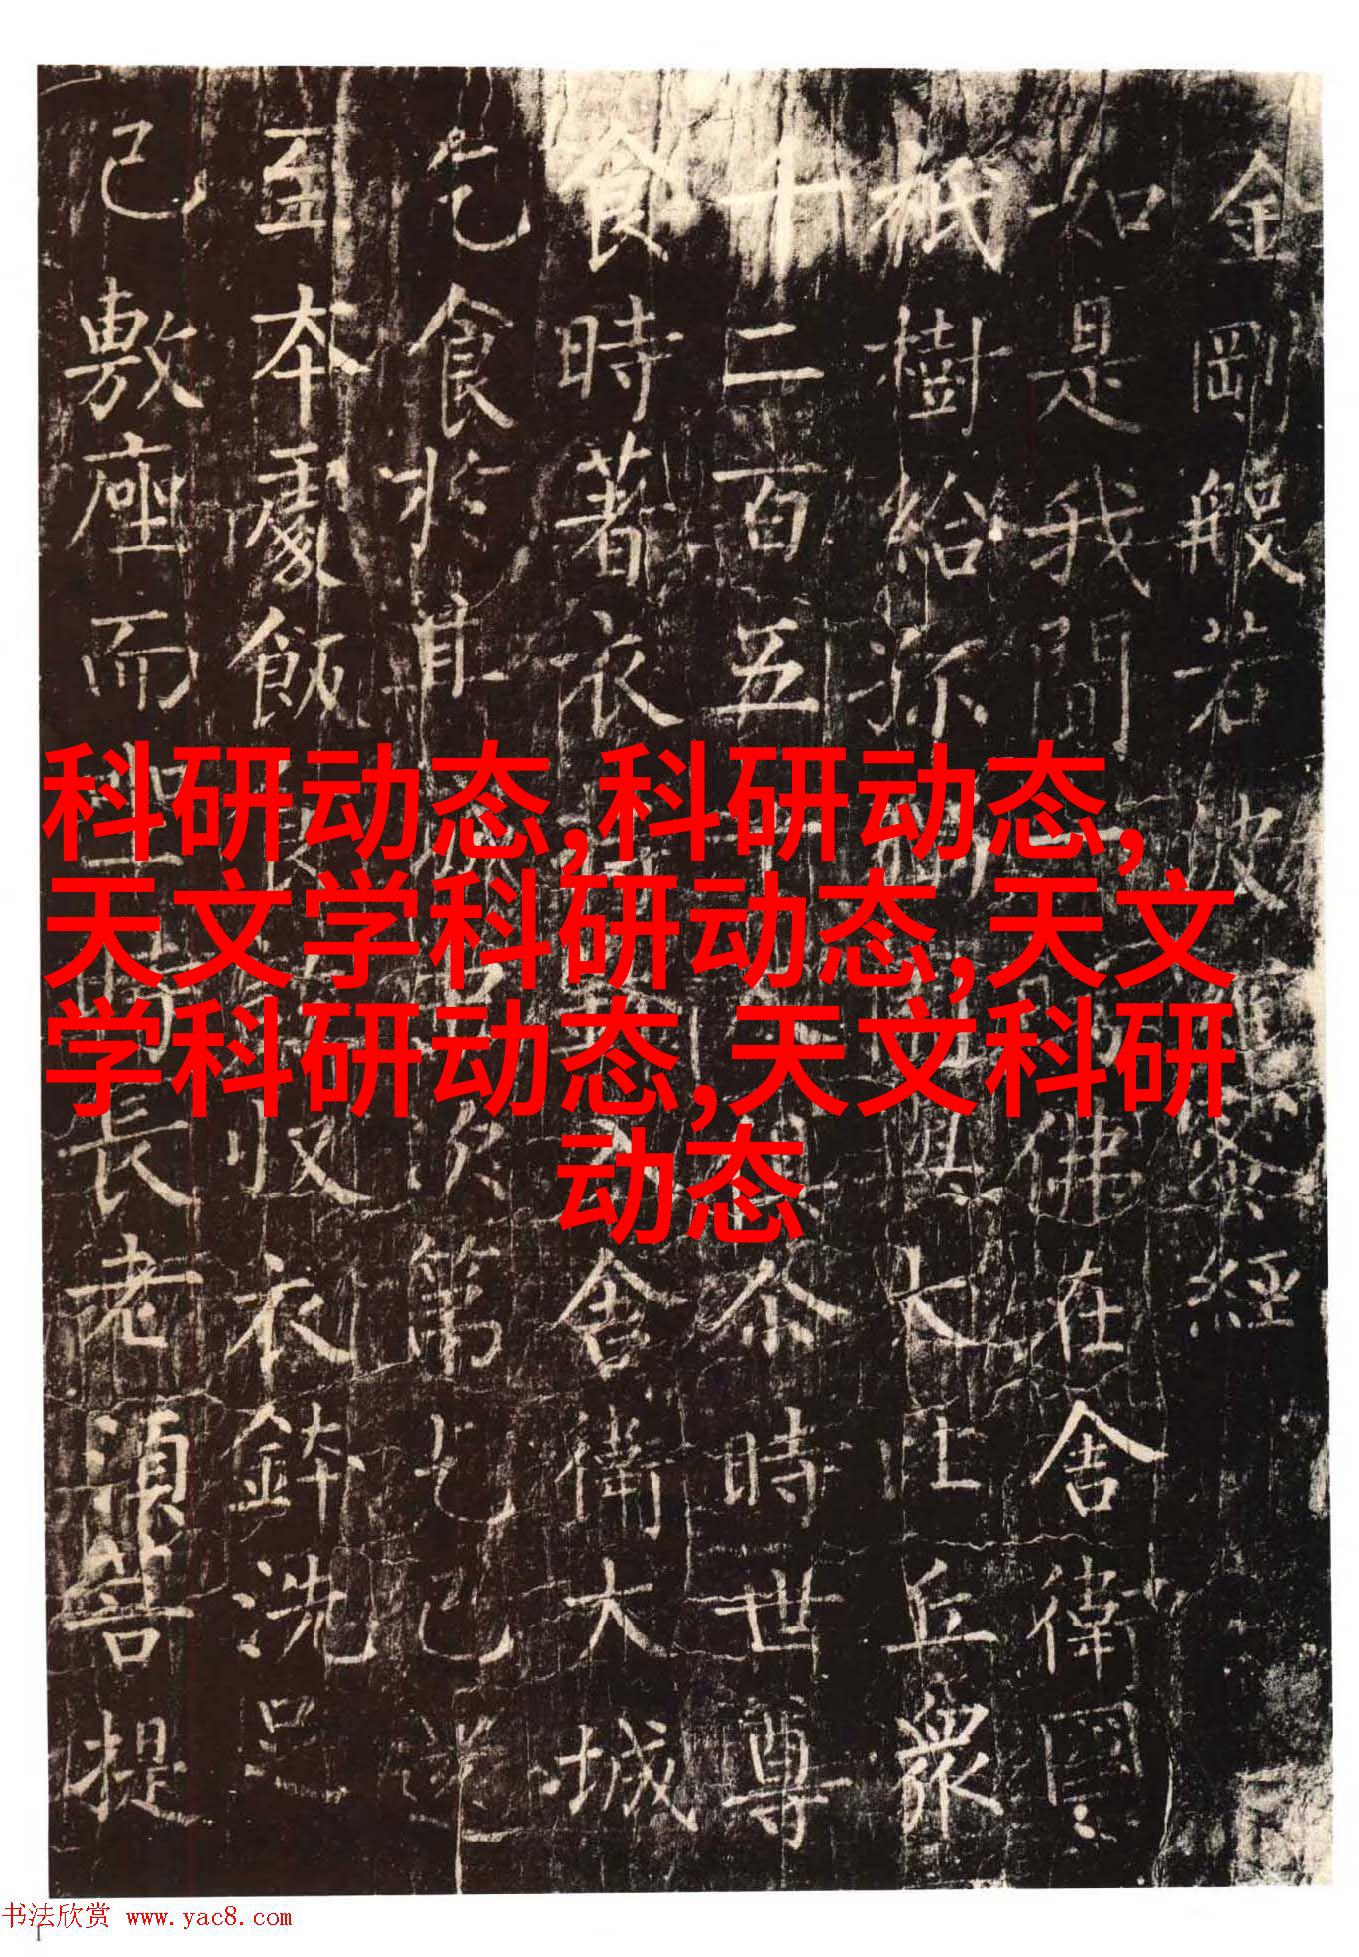 金剛般若波蜜經
如是我聞佛在舍衛國
祇樹給孤大比丘衆
十二百五尒時世尊
食時著衣舍衛大城
乞食於其次第乞已還
至本處飯收衣鉢洗足
已敷座而長老須菩提
科研动态,科研动态,
天文学科研动态,天文
学科研动态,天文科研
动态
书法欣赏 www.yac8.com